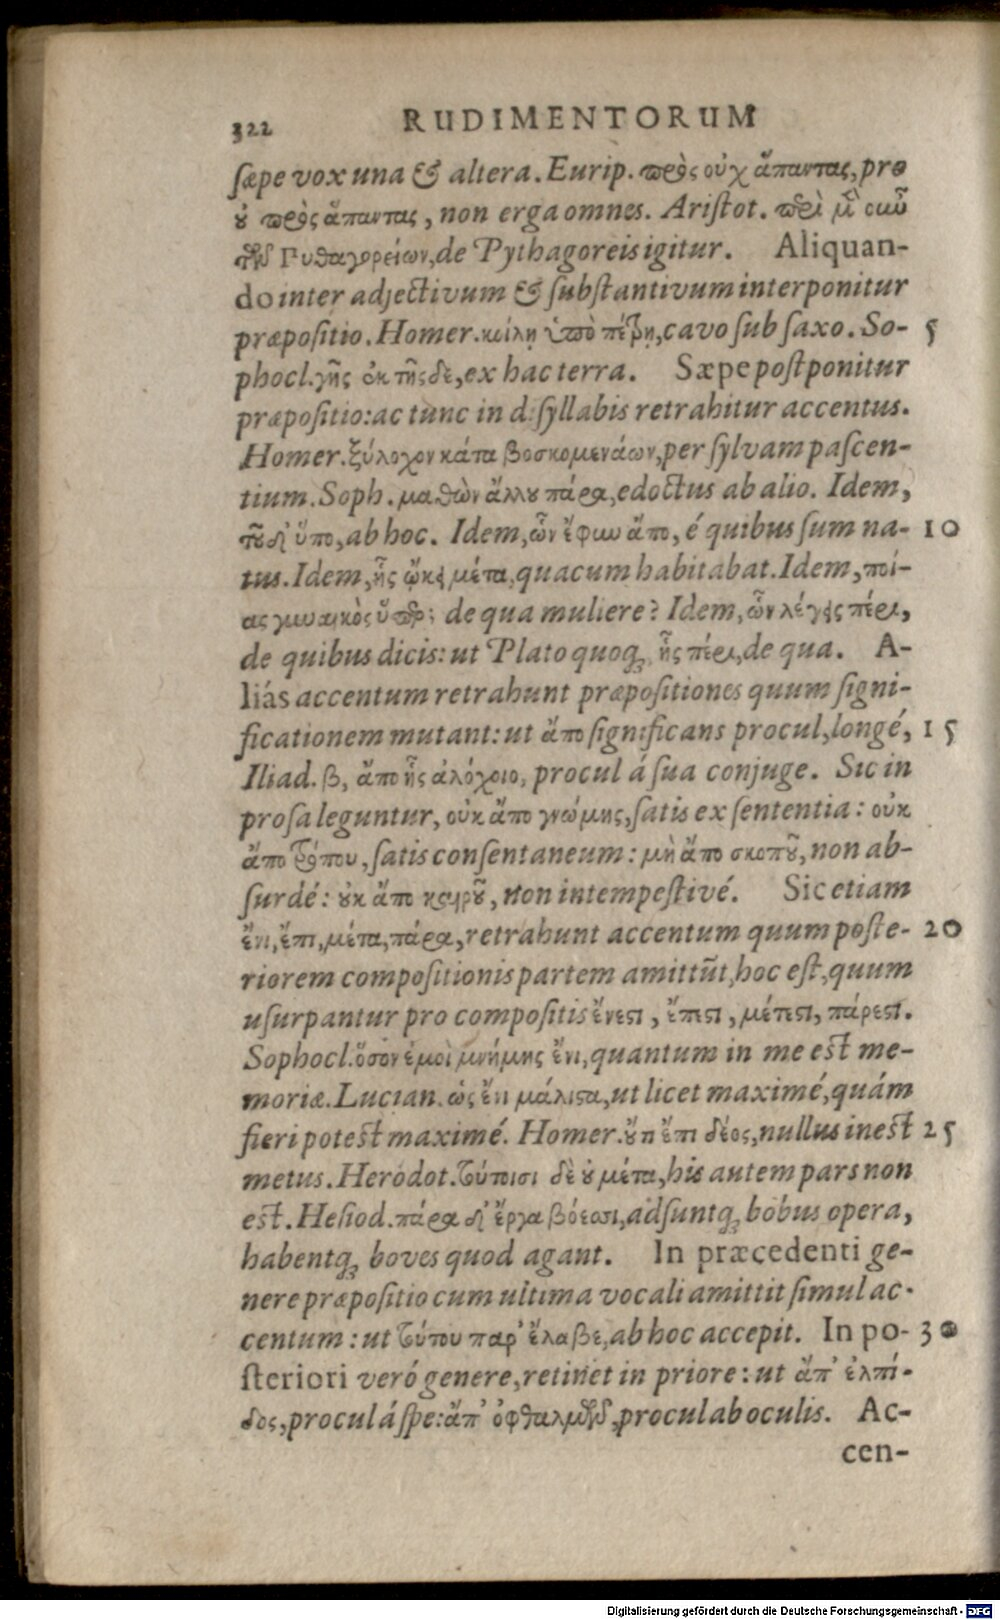 322 RUDIMENTORUM
sæpe vox una & altera. Eurip. πρὸς οὐχ ἅπαντας, pro
ȣ πρὸς ἅπαντας, non erga omnes. Aristot. περὶ μὲν οιιῦ
τῶν Πυθαγορείων, de Pythagoreis igitur. Aliquan-
do inter adjectivum & substantivum interponitur
præpositio. Homer. κοίλῃ ὑπὸ πέτρῃ, cavo sub saxo. So- 5
phocl. γῆς ἐκ τῆςδε, ex hac terra. Sæpe postponitur
præpositio: ac tunc in disyllabis retrahitur accentus.
Homer. ξύλοχον κάτα βοσκομενάων, per sylvam pascen-
tium. Soph. μαθὼν ἄλλȣ πάρα, edoctus ab alio. Idem,
τοῦδ' ὕπο, ab hoc. Idem, ὧν ἔφυν ἄπο, é quibus sum na- 10
tus. Idem, ἧς ᾤκει μέτα, quacum habitabat. Idem, ποί-
ας γυναικὸς ὕπερ; de qua muliere? Idem, ὧν λέγεις πέρι,
de quibus dicis: ut Plato quoq; ἧς πέρι, de qua. A-
liás accentum retrahunt præpositiones quum signi-
ficationem mutant: ut ἄπο significans procul, longé, 15
Iliad. β, ἄπο ἧς ἀλόχοιο, procul á sua conjuge. Sic in
prosa leguntur, οὐκ ἄπο γνώμης, satis ex sententia: οὐκ
ἄπο τρόπου, satis consentaneum: μὴ ἄπο σκοπȣ͂, non ab-
surdé: ȣκ ἄπο καιρȣ͂, non intempestivé. Sic etiam
ἔνι, ἔπι, μέτα, πάρα, retrahunt accentum quum poste- 20
riorem compositionis partem amittũt, hoc est, quum
usurpantur pro compositis ἔνεστι, ἔπεστι, μέτεστι, πάρεστι.
Sophocl. ὅσον ἐμοὶ μνήμης ἔνι, quantum in me est me-
moriæ. Lucian. ὡς ἔνι μάλιστα, ut licet maximé, quám
fieri potest maximé. Homer. ȣ̓́τι ἔπι δέος, nullus inest 25
metus. Herodot. τούτοισι δὲ ȣ̓ μέτα, his autem pars non
est. Hesiod. πάρα δ' ἔργα βόεσσι, adsuntq; bobus opera,
habentq; boves quod agant. In præcedenti ge-
nere præpositio cum ultima vocali amittit simul ac-
centum: ut τούτου παρ' ἔλαβε, ab hoc accepit. In po- 30
steriori veró genere, retinet in priore: ut ἄπ' ἐλπί-
δος, procul á spe: ἄπ' ὀφθαλμῶν, procul ab oculis. Ac-
cen-
Digitalisierung gefördert durch die Deutsche Forschungsgemeinschaft - DFG